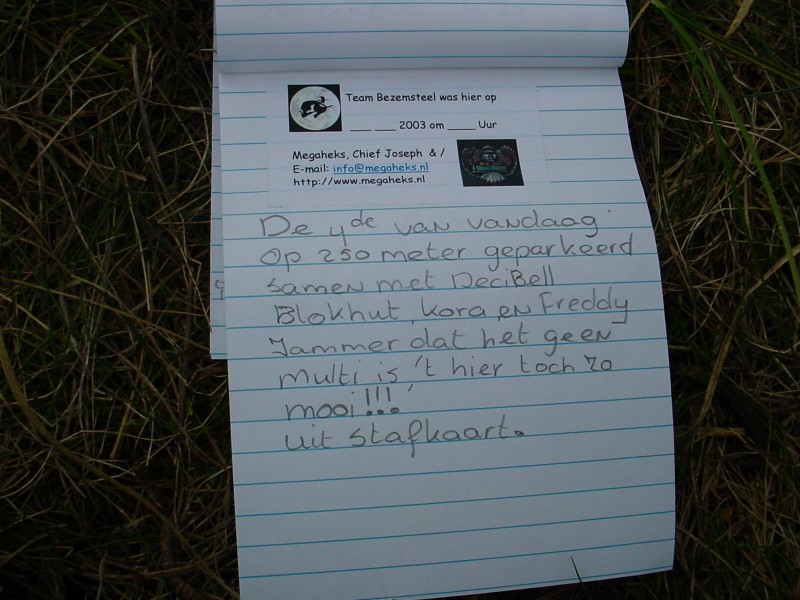 Team Bezemsteel was hier op
___ ___ 2003 om ____ Uur
Megaheks, Chief Joseph & /
E-mail: info@megaheks.nl
http://www.megaheks.nl
De 4de van vandaag
op 250 meter geparkeerd
samen met DeciBell
Blokhut, kora en Freddy
Jammer dat het geen
multi is, 't hier toch zo
mooi!!!
uit stafkaart.